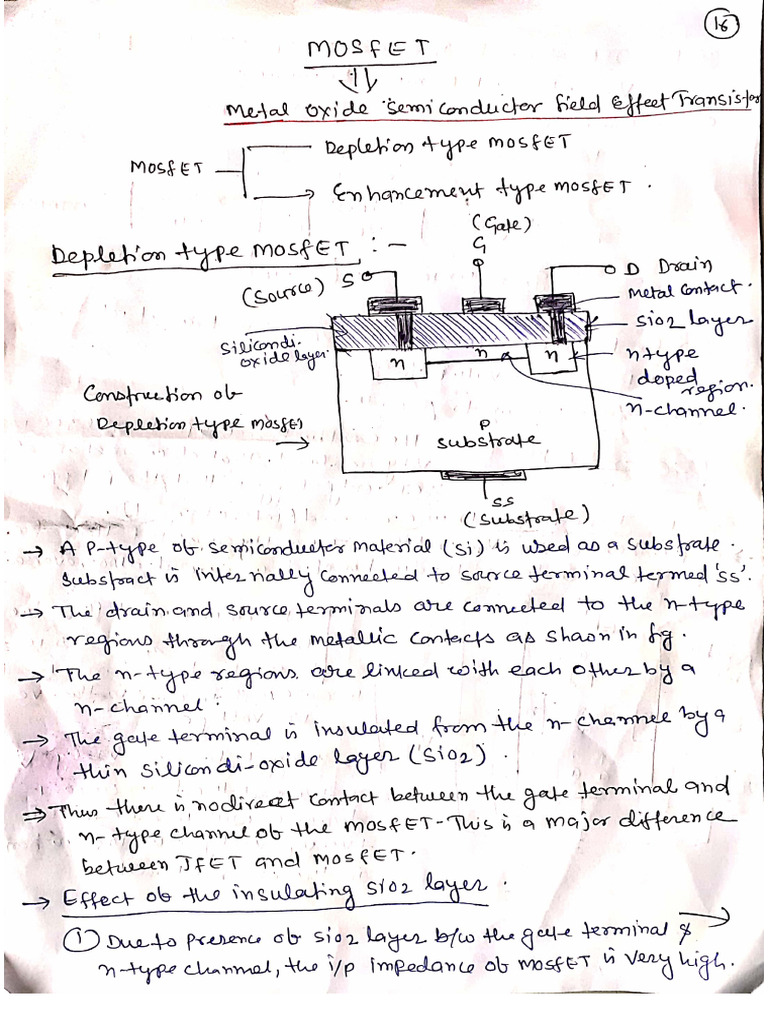 16
MOSFET
Metal oxide semiconductor field Effect Transistor
Depletion type MOSFET
MOSFET
Enhancement type MOSFET.
(Gate)
G
Depletion type MOSFET :-
(Source) S
D Drain
Metal contact.
SiO2 layer
Silicondi-
oxide layer.
n
n
n
n type
doped
region.
n-channel.
Construction of
Depletion type MOSFET
P
Substrate
SS
(Substrate)
→ A P-type of semiconductor material (Si) is used as a substrate.
Substract is internally connected to source terminal termed 'SS'.
→ The drain and source terminals are connected to the n-type
regions through the metallic contacts as shown in fig.
→ The n-type regions are linked with each other by a
n-channel.
→ The gate terminal is insulated from the n-channel by a
thin silicondi-oxide layer (SiO2).
⇒ Thus there is no direct contact between the gate terminal and
n-type channel of the MOSFET-This is a major difference
between JFET and MOSFET.
→ Effect of the insulating SiO2 layer.
① Due to presence of SiO2 layer b/w the gate terminal &
n-type channel, the i/p impedance of MOSFET is very high.